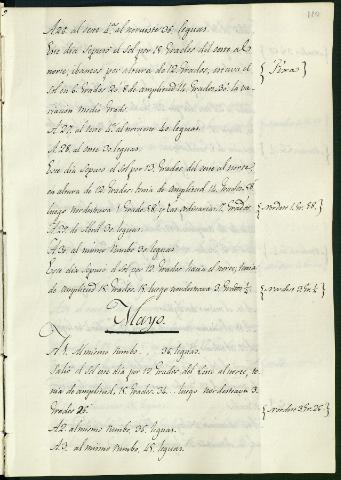 110
A 26. al oeste 4.ª al noroeste 36. leguas.
Este dia se puso el Sol por 18. Grados del oeste al
norte, ibamos por altura de 12. Grados, estava el
Sol en 6. Grados 20. 8. de amplitud 14. Grados. 30. la va-
riacion medio Grado.
A 27. al oeste 4.ª al noroeste 40. leguas.
A 28. al oeste 30. leguas.
Este dia se puso el sol por 13. Grados del oeste al norte,
en altura de 12. Grados, tenia de amplitud 14. Grados. 58.
luego nordestea 1. Grado. 58. y las ordinarias
A 29. de Abril. 30. leguas.
A 30. al mismo rumbo 30. leguas
Este dia se puso el sol por 12. Grados hacia el norte, tenia
de amplitud 15. Grados. luego nordesteava 3. Grados ½.
{ nordest. 1. Gr. 58. }
{ nordes 3 Gr. ½ }
Mayo.
A 1. al mismo rumbo. 36. leguas.
Salió el sol este dia por 12 Grados del Leste al norte, te-
nia de amplitud, 15. Grados. 26. luego nordesteava 3.
Grados 26.
{ Nordes 3 Gr. 26. }
A 2. al mismo rumbo, 36. leguas.
A 3. al mismo rumbo, 45. leguas.